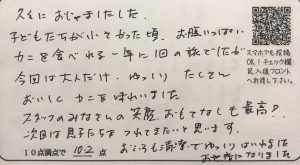 久々に おじゃましました。
子どもたちが小さかった頃、お腹いっぱい
カニを食べれる一年に1回の旅でしたが
今回は大人だけ、ゆっくり たくさん
おいしく カニを味わいました
スタッフのみなさんの笑顔、おもてなしも最高!
次回は息子たちを つれてきたいと思います。
おふろも清潔で ゆっくりはいれました
お世話になりました
10点満点で 102 点
スマホでも投稿
OK!チェック欄
記入後フロント
へお渡し下さい。